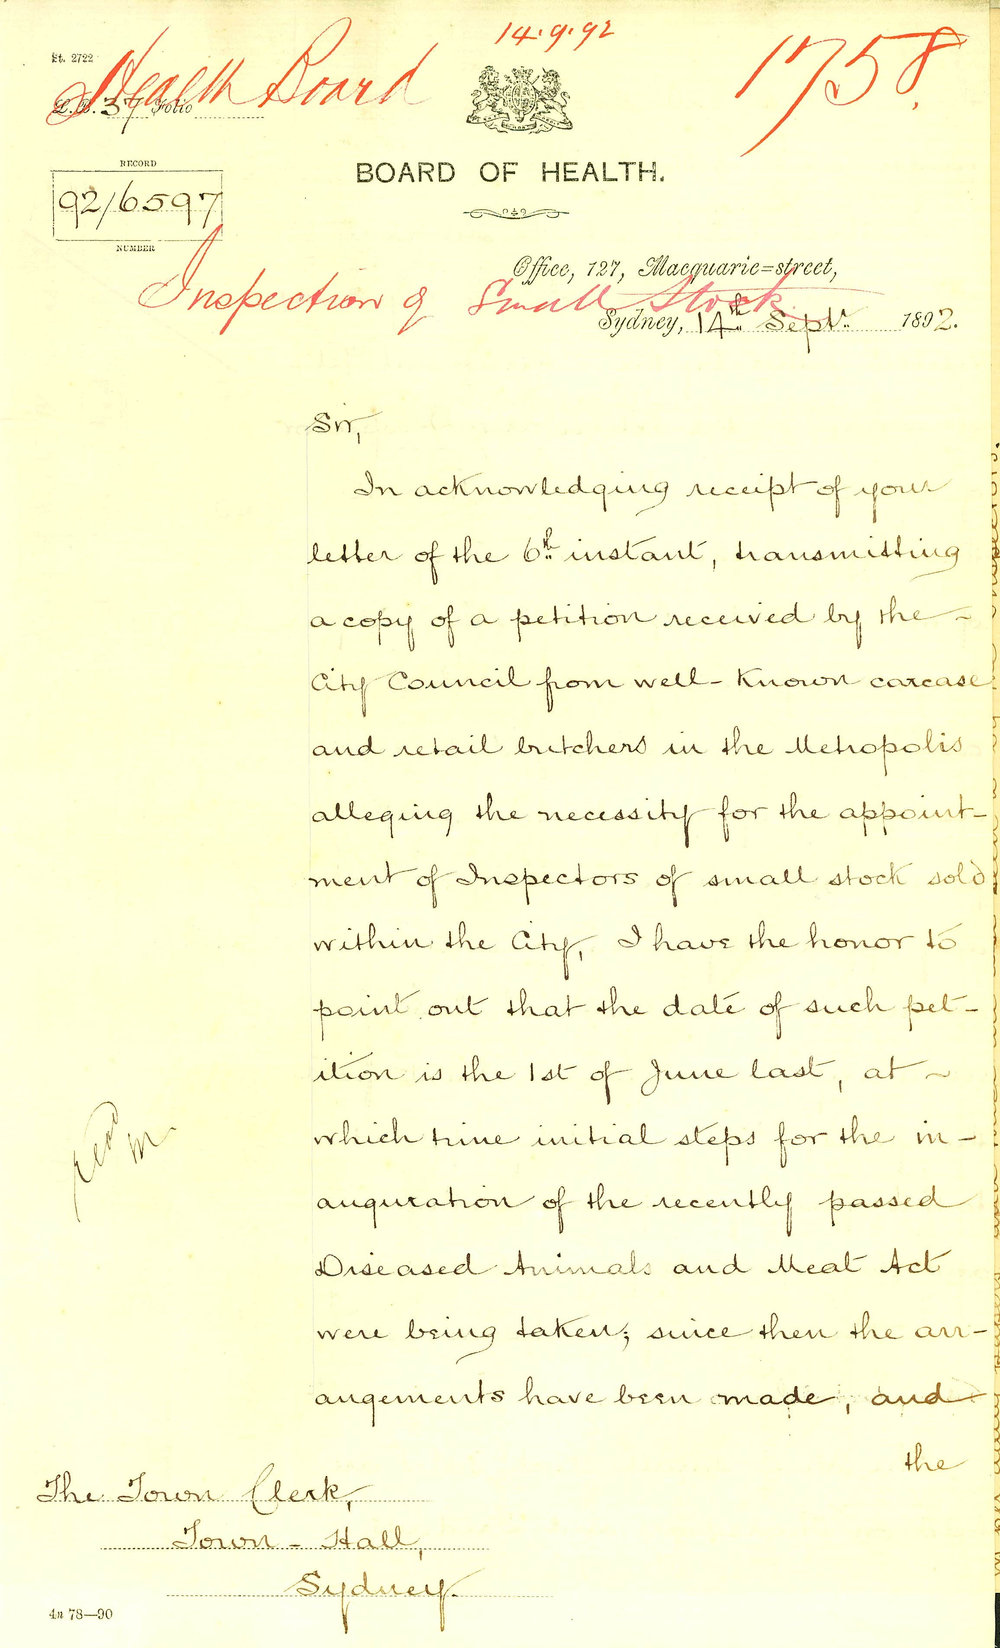 14.9.92
Health Board
1758.
St. 2722
L.B. 37 Folio
RECORD
92/6597
NUMBER
BOARD OF HEALTH.
Office, 127, Macquarie=street,
Inspection of Small Stock
Sydney, 14th Septr. 1892.
Sir,
In acknowledging receipt of your
letter of the 6th instant, transmitting
a copy of a petition received by the
City Council from well-known carcase
and retail butchers in the Metropolis
alleging the necessity for the appoint-
ment of Inspectors of small stock sold
within the City, I have the honor to
point out that the date of such pet-
ition is the 1st of June last, at
which time initial steps for the in-
auguration of the recently passed
Diseased Animals and Meat Act
were being taken; since then the arr-
angements have been made, and
the
The Town Clerk,
Town-Hall,
Sydney.
4n 78—90